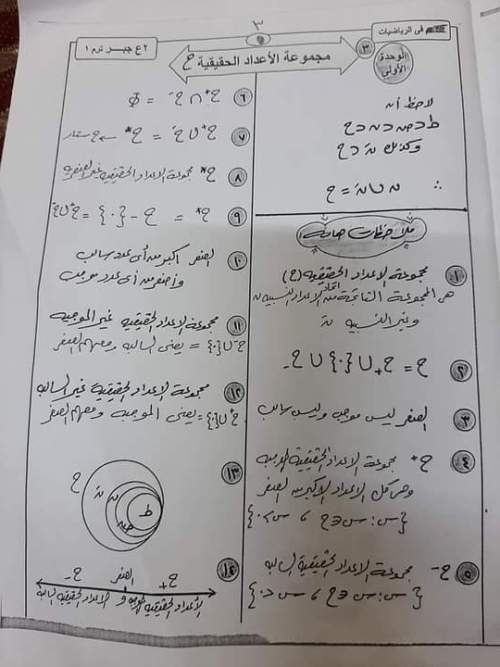 ٣
فى الرياضيات
٢ع جبر ترم ١
٩
الوحدة
الأولى
٣
مجموعة الأعداد الحقيقية ح
لاحظ أن
ط ⊂ ص ⊂ ن ⊂ ح
وكذلك نَ ⊂ ح
∴ ن ∪ نَ = ح
ملاحظات هامة
١ مجموعة الاعداد الحقيقيه (ح)
هى المجموعة الناتجة من اتحاد الاعداد النسبيه ن
وغير النسبيه نَ
٢ ح = ح₊ ∪ {٠} ∪ ح₋
٣ الصفر ليس موجب وليس سالب
٤ ح⁺ مجموعة الاعداد الحقيقية الموجبه
وهى كل الاعداد الاكبر من الصفر
{س : س ∈ ح ، س > ٠}
٥ ح⁻ مجموعة الاعداد الحقيقية السالبه
{س : س ∈ ح ، س < ٠}
٦ ح⁺ ∩ ح⁻ = Φ
٧ ح⁺ ∪ ح⁻ = ح*
٨ ح* مجموعة الاعداد الحقيقيه غير الصفريه
٩ ح* = ح - {٠} = ح⁺ ∪ ح⁻
١٠ الصفر اكبر من أى عدد سالب
وأصغر من أى عدد موجب
١١ مجموعة الاعداد الحقيقيه غير الموجبه
ح⁻ ∪ {٠} = يعنى السالبه ومعهم الصفر
١٢ مجموعة الاعداد الحقيقيه غير السالبه
ح⁺ ∪ {٠} = يعنى الموجبه ومعهم الصفر
١٣
ح
نَ
ن
ص
ط
١٤
ح₊ الصفر ح₋
الأعداد الحقيقيه الموجبه و الاعداد الحقيقيه السالبه